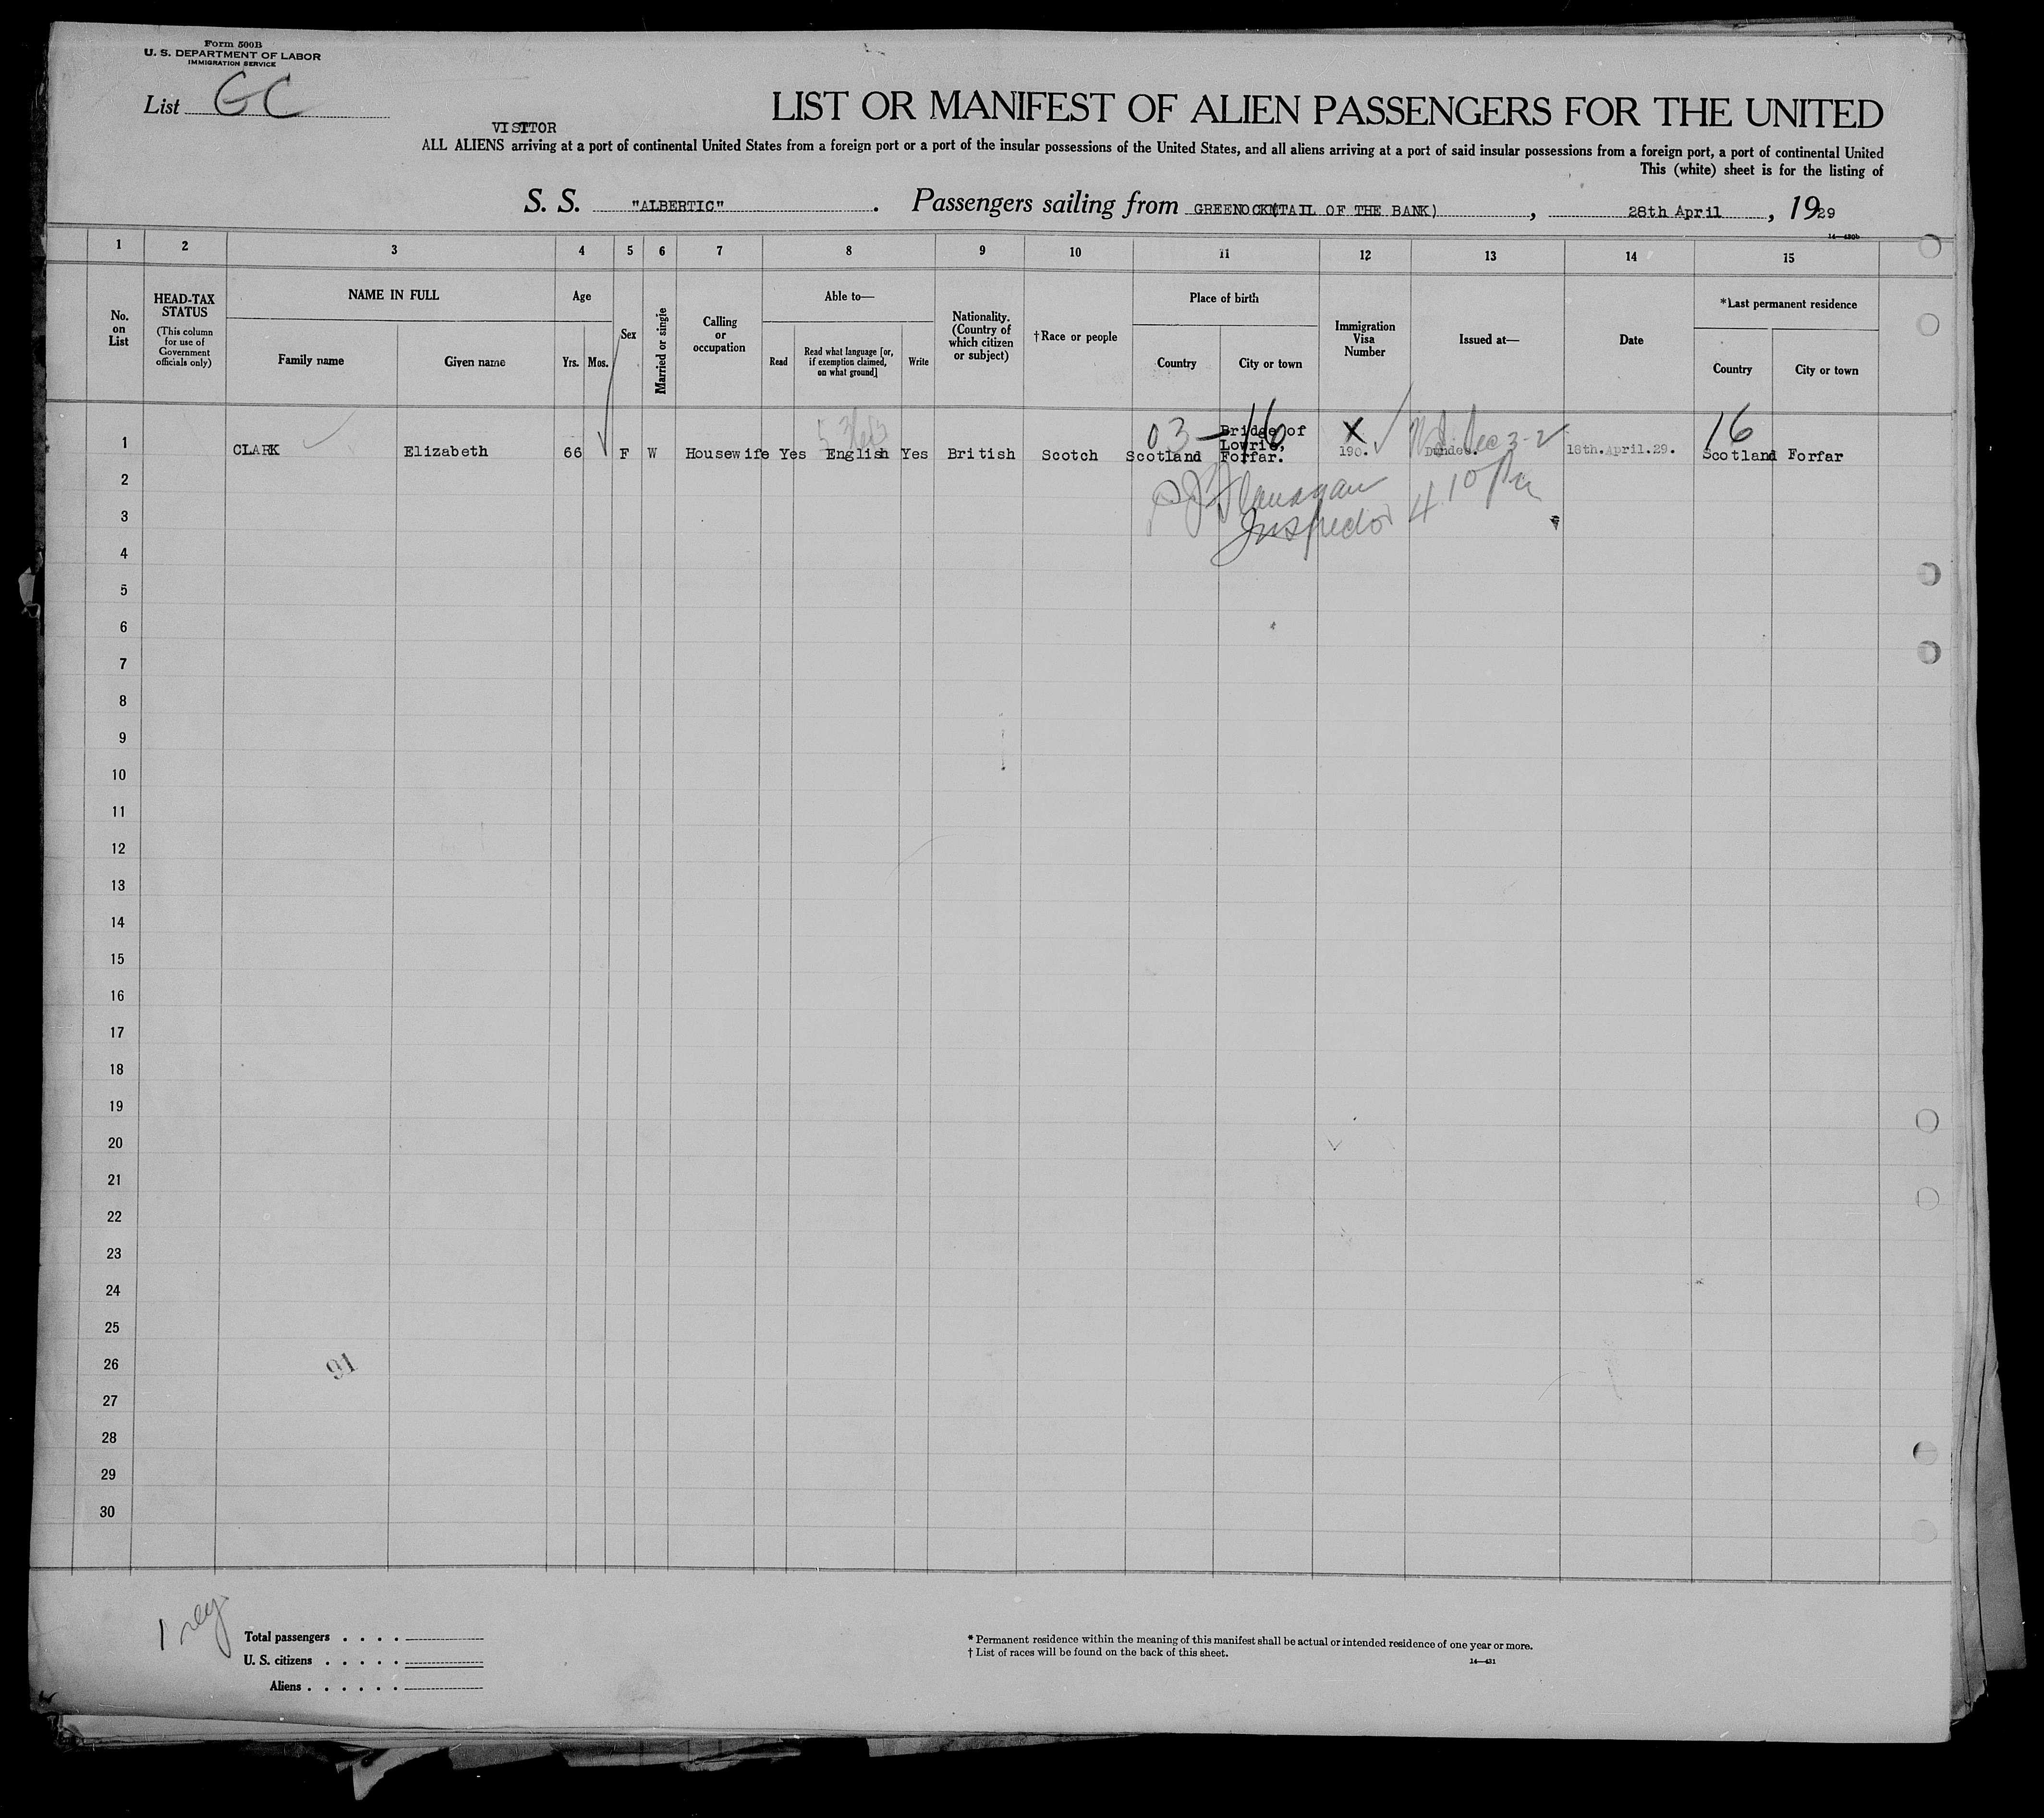 Form 500B
U. S. DEPARTMENT OF LABOR
IMMIGRATION SERVICE
List GC
LIST OR MANIFEST OF ALIEN PASSENGERS FOR THE UNITED
VISITOR
ALL ALIENS arriving at a port of continental United States from a foreign port or a port of the insular possessions of the United States, and all aliens arriving at a port of said insular possessions from a foreign port, a port of continental United
This (white) sheet is for the listing of
S. S. "ALBERTIC". Passengers sailing from GREENOCK(TAIL OF THE BANK), 28th April, 1929
14—430b
1 2 3 4 5 6 7 8 9 10 11 12 13 14 15
No. on List
HEAD-TAX STATUS
(This column for use of Government officials only)
NAME IN FULL
Family name
Given name
Age
Yrs.
Mos.
Sex
Married or single
Calling or occupation
Able to—
Read
Read what language [or, if exemption claimed, on what ground]
Write
Nationality. (Country of which citizen or subject)
†Race or people
Place of birth
Country
City or town
Immigration Visa Number
Issued at—
Date
*Last permanent residence
Country
City or town
03 — 16 X 16
1 CLARK Elizabeth 66 F W Housewife Yes English Yes British Scotch Scotland Bridge of Lowrie, Forfar. 190. Dundee. 18th.April.29. Scotland Forfar
2
Flanagan
3
Inspector
4
5
6
7
8
9
10
11
12
13
14
15
16
17
18
19
20
21
22
23
24
25
26
91
27
28
29
30
1
Total passengers . . . .
U. S. citizens . . . . .
Aliens . . . . . .
* Permanent residence within the meaning of this manifest shall be actual or intended residence of one year or more.
† List of races will be found on the back of this sheet.
14—431